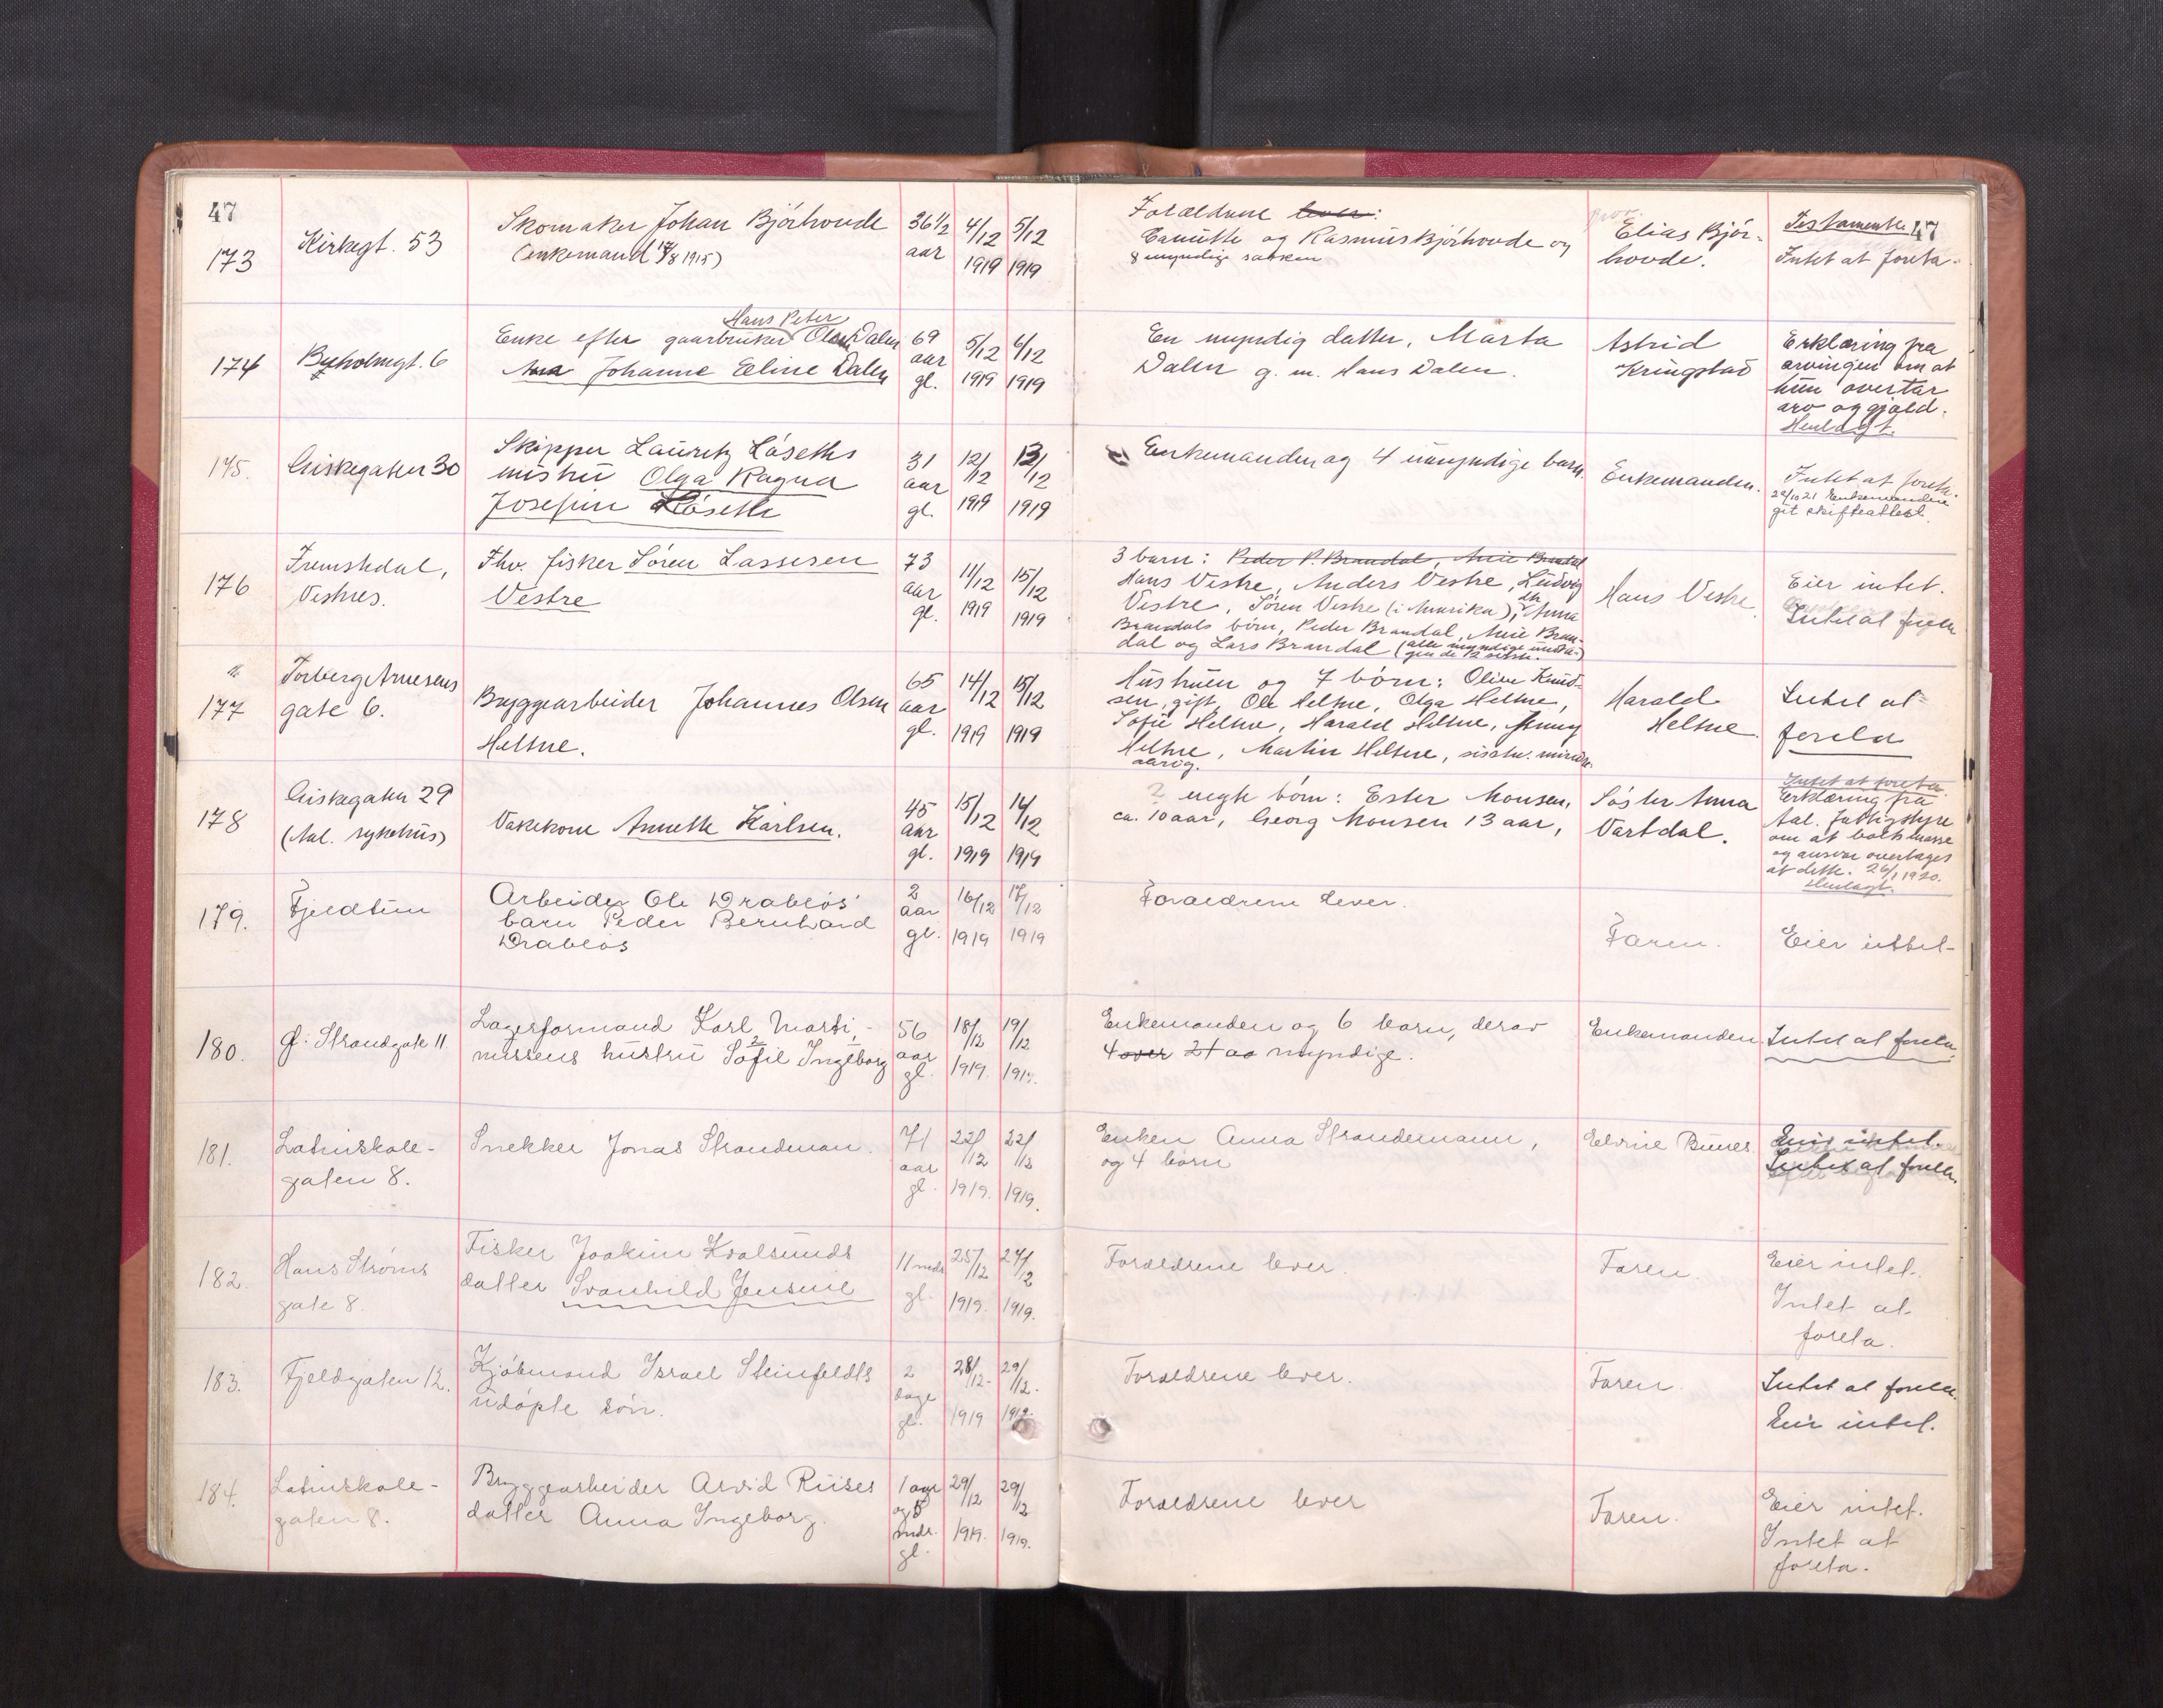 47
173
Kirkegt. 53
Skomaker Johan Bjórhovde
(enkemand 17/8 1915)
36 1/2
aar
4/12
1919
5/12
1919
Forældrene lever:
og Rasmus Bjórhovde og
8 myndige søsken
Elias Bjór-
hovde.
Testamente 47
Intet at foreta.
174
Byholmgt. 6
Hans Peter
Enke efter gaardbruker Olsen Dalen
Ana Johanne Eline Dalen
69
aar
gl.
5/12
1919
6/12
1919
En myndig datter, Marta
Dalen g. m. Hans Dalen.
Astrid
Kringstad
Erklæring fra
arvingen om at
hun overtar
arv og gjæld.
Henlagt.
175.
Giskegaten 30
Skipper Lauritz Lóseths
hustru Olga Ragna
Josefine Lóseth
31
aar
gl.
12/12
1919
13/12
1919
Enkemanden og 4 umyndige barn.
Enkemanden.
Intet at foreta.
24/10 21 Enkemanden
git skifteattest.
176
Fremstedal,
Vestnes.
Fhv. fisker Sóren Lassesen
Vestre
73
aar
gl.
11/12
1919
15/12
1919
3 barn: Peder P. Brandal, Anie Brandal
Hans Vestre, Anders Vestre, Ludvig
Vestre, Sóren Vestre (i Amerika), Anna
Brandals bórn, Peder Brandal, Anie Bran-
dal og Lars Brandal (alle myndige undta-
gen de 2 sidste.)
Hans Vestre
Eier intet.
Intet at foreta
177
Torberg Arnesens
gate 6.
Bryggearbeider Johannes Olsen
Heltne.
65
aar
gl.
14/12
1919
15/12
1919
Hustruen og 7 bórn: Oline Knud-
sen, gift, Ole Heltne, Olga Heltne,
Sofie Heltne, Harald Heltne, Jenny
Heltne, Martin Heltne, sistn. mindre-
aarig.
Harald
Heltne.
Intet at
foreta
178
Giskegaten 29
(Aal. sykehus)
Vakekone Annette Karlsen.
45
aar
gl.
15/12
1919
14/12
1919
2 uegte bórn: Ester Monsen,
ca. 10 aar, Georg Monsen 13 aar,
Sóster Anna
Vartdal.
Intet at foreta.
Erklæring fra
Aal. fattigstyre
om at masse
og ansvar overtages
at dette. 26/1 1920.
Henlagt.
179.
Fjeldtun
Arbeider Ole Drabløs'
barn Peder Bernhard
Drabløs
2
aar
gl.
16/12
1919
17/12
1919
Forældrene lever.
Faren.
Eier intet
180.
Ø. Strandgate 11.
Lagerformand Karl Marti-
nussens hustru Sofie Ingeborg
56
aar
gl.
18/12
1919.
19/12
1919.
Enkemanden og 6 barn, derav
4 over 21 aa myndige.
Enkemanden.
Intet at foreta.
181.
Latinskole-
gaten 8.
Snekker Jonas Strandman.
71
aar
gl.
22/12
1919.
22/12
1919.
Enken Anna Strandemann,
og 4 barn
Eldrie Bunes.
Eier intet.
Intet at foreta.
182.
Hans Strøms
gate 8.
Fisker Joakim Kvalsunds
datter Svanhild Jensine
11 mdr
gl.
25/12
1919.
27/12
1919.
Forældrene lever.
Faren.
Eier intet.
Intet at
foreta.
183.
Fjeldgaten 12.
Kjóbmand Israel Steinfeldts
udópte són.
2
dage
gl.
28/12.
1919
29/12.
1919.
Forældrene lever.
Faren.
Intet at foreta.
Eier intet.
184.
Latinskole-
gaten 8.
Bryggearbeider Arvid Riises
datter Anna Ingeborg.
1 aar
og 5
mdr.
gl.
29/12
1919.
29/12
1919.
Forældrene lever
Faren.
Eier intet.
Intet at
foreta.